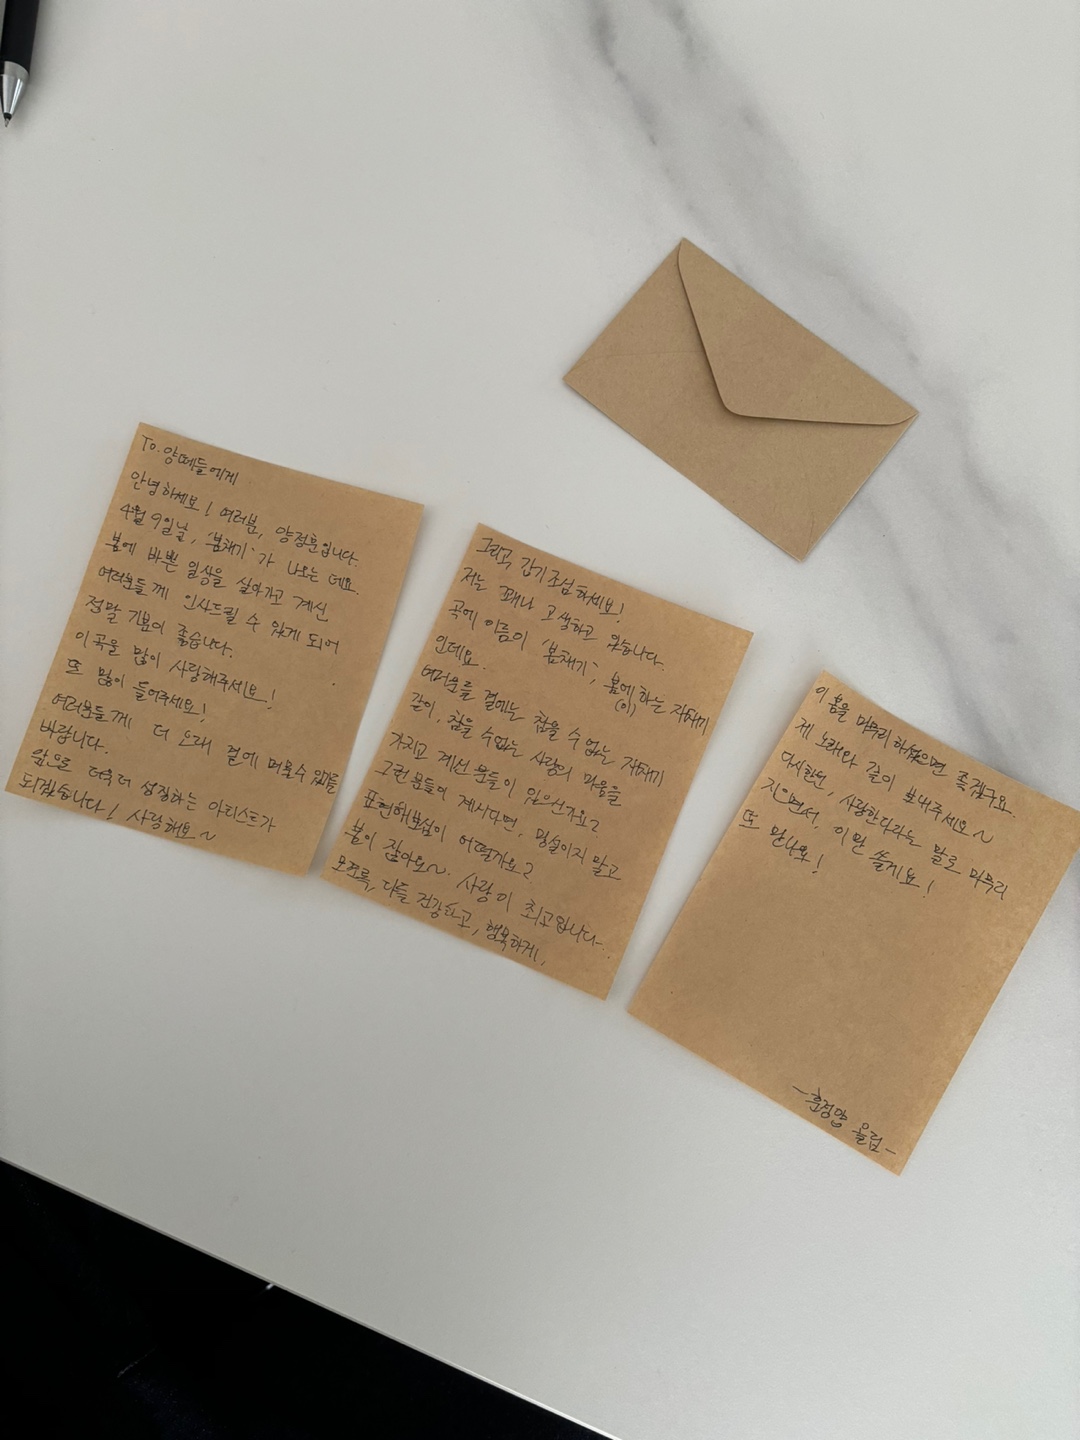 To. 양떼들에게
안녕하세요! 여러분, 양정훈입니다.
4월 9일날, '봄채기'가 나오는 데요.
봄에 바쁜 일상을 살아가고 계신
여러분들께 인사드릴 수 있게 되어
정말 기분이 좋습니다.
이 곡을 많이 사랑해주세요!
또 많이 들어주세요!
여러분들께 더 오래 곁에 머물수 있기를
바랍니다.
앞으로 더욱더 성장하는 아티스트가
되겠습니다! 사랑해요~
그리고 감기조심하세요!
저는 꽤나 고생하고 있습니다.
곡에 이름이 '봄채기', 봄에 하는 재채기
(이)
인데요.
여러분들 곁에는 참을 수 없는 재채기
같이, 참을 수 없는 사랑의 마음을
가지고 계신 분들이 있으신가요?
그런 분들이 계시다면, 망설이지 말고
표현해보심이 어떨가요?
봄이 잖아요~ 사랑이 최고입니다~.
모쪼록, 다들 건강하고, 행복하게,
이 봄을 마무리 하셨으면 좋겠구요.
제 노래와 같이 보내주세요~
다시한번, 사랑한다라는 말로 마무리
지으면서, 이만 쓸게요!
또 만나요!
- 훈정양 올림 -